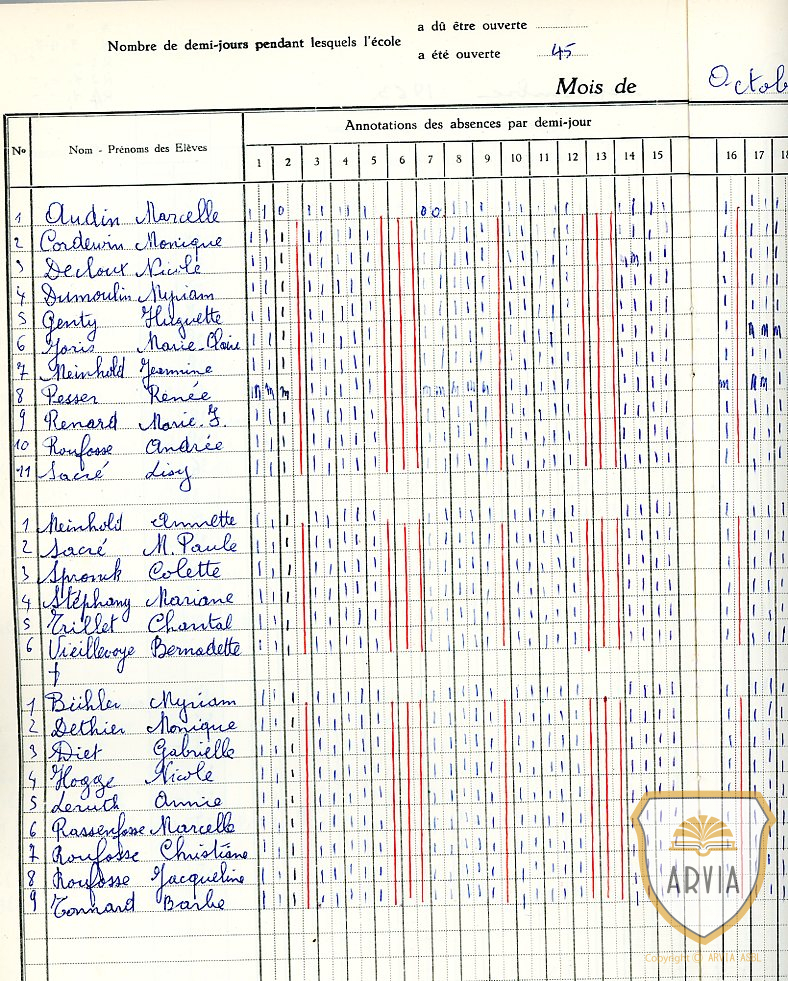 a dû être ouverte
Nombre de demi-jours pendant lesquels l'école
a été ouverte 45
Mois de Octob
No Nom - Prénoms des Elèves Annotations des absences par demi-jour
1 2 3 4 5 6 7 8 9 10 11 12 13 14 15 16 17 18
1 Audin Marcelle
2 Corderwin Monique
3 Decloux Nicole
4 Dumoulin Myriam
5 Genty Huguette
6 Joris Marie-Claire
7 Meinhold Jeannine
8 Pesser Renée
9 Renard Marie. J.
10 Roufosse Andrée
11 Sacré Lisy
1 Meinhold Annette
2 Sacré M. Paule
3 Spronk Colette
4 Stéphany Mariane
5 Trillet Chantal
6 Vieillevoye Bernadette
1 Bühler Myriam
2 Dethier Monique
3 Diet Gabrielle
4 Hogge Nicole
5 Leruth Annie
6 Rassenfosse Marcelle
7 Roufosse Christiane
8 Roufosse Jacqueline
9 Tonnard Barbe
ARVIA
Copyright © ARVIA ASBL